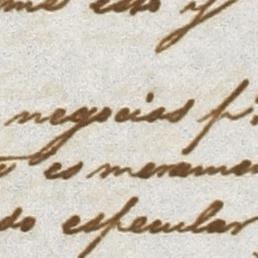 esto y
negocios p
es merame
do especular